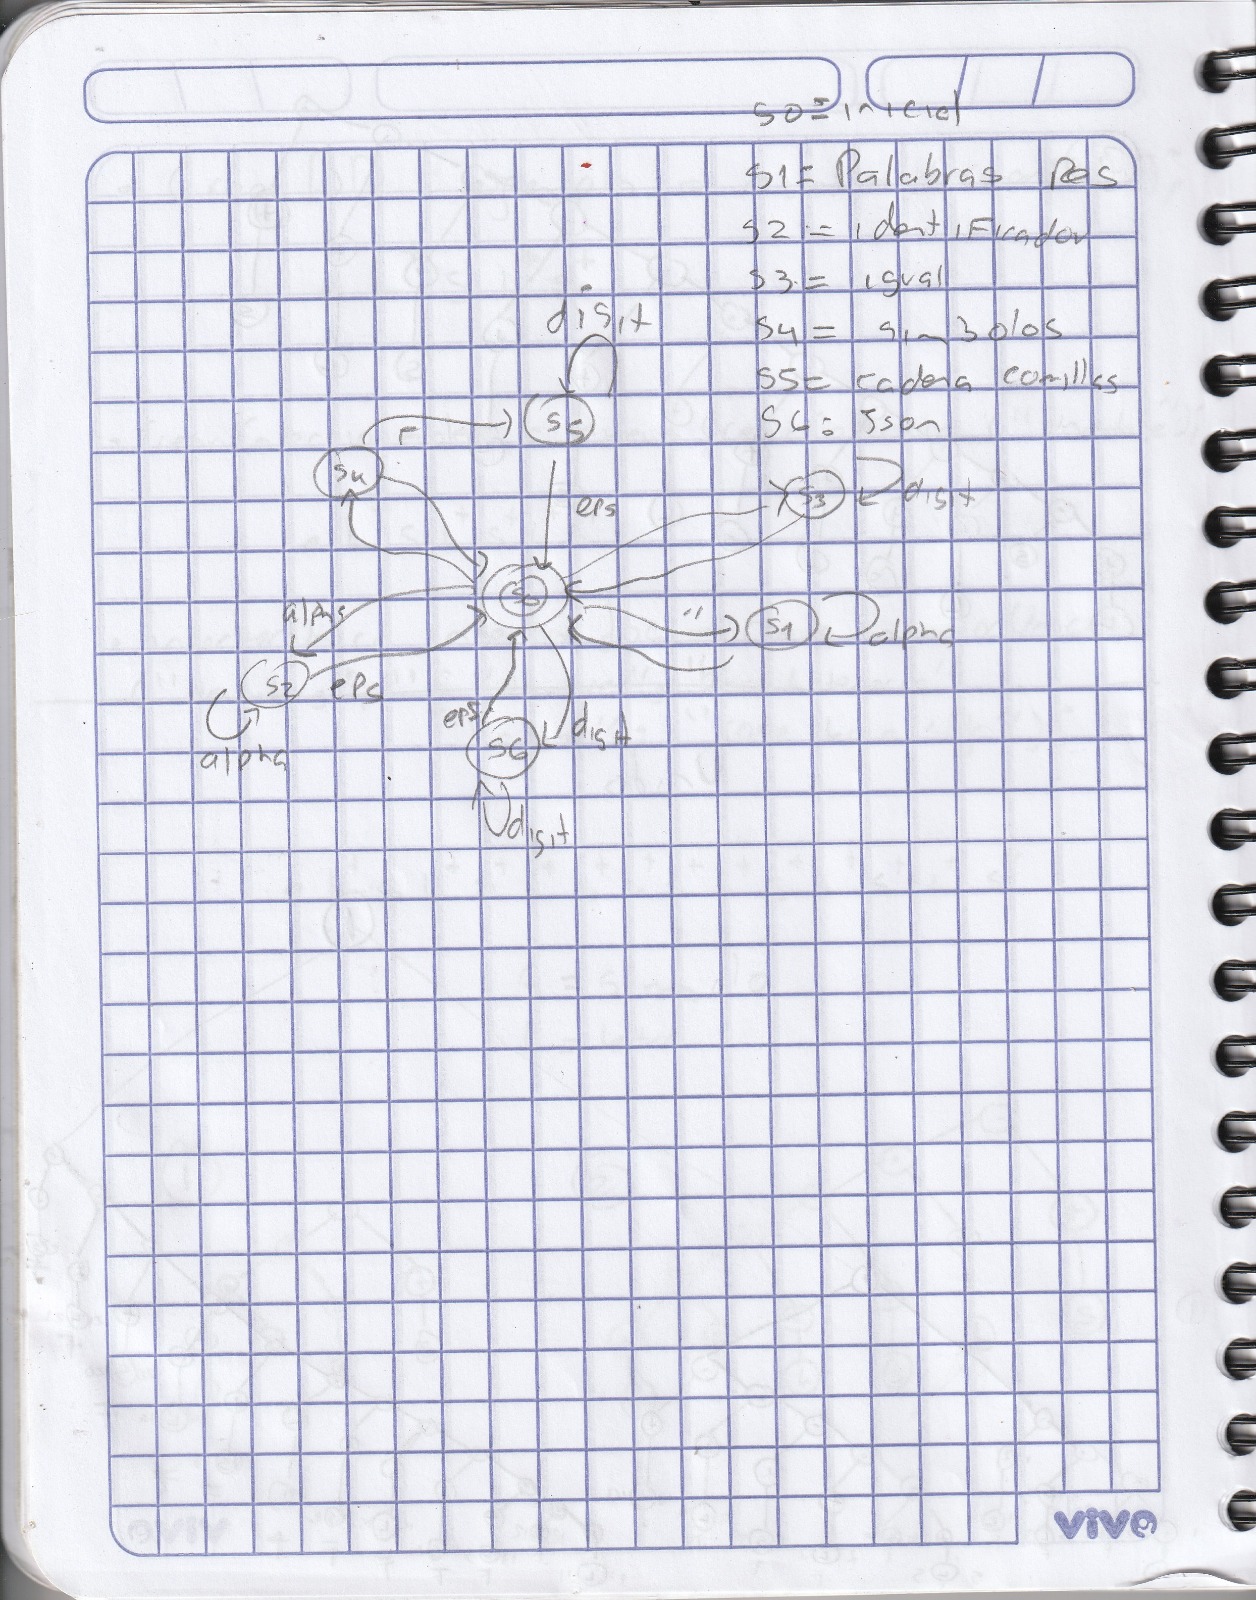 S0 = inicial
S1 = Palabras Res
S2 = identiFicador
S3 = igual
S4 = sim3olos
S5 = cadena comillas
S6 = Json
digit
S5
S4
S3
digit
eps
S0
alpha
"
S1
alpha
S2
eps
eps
digit
S6
alpha
digit
vive